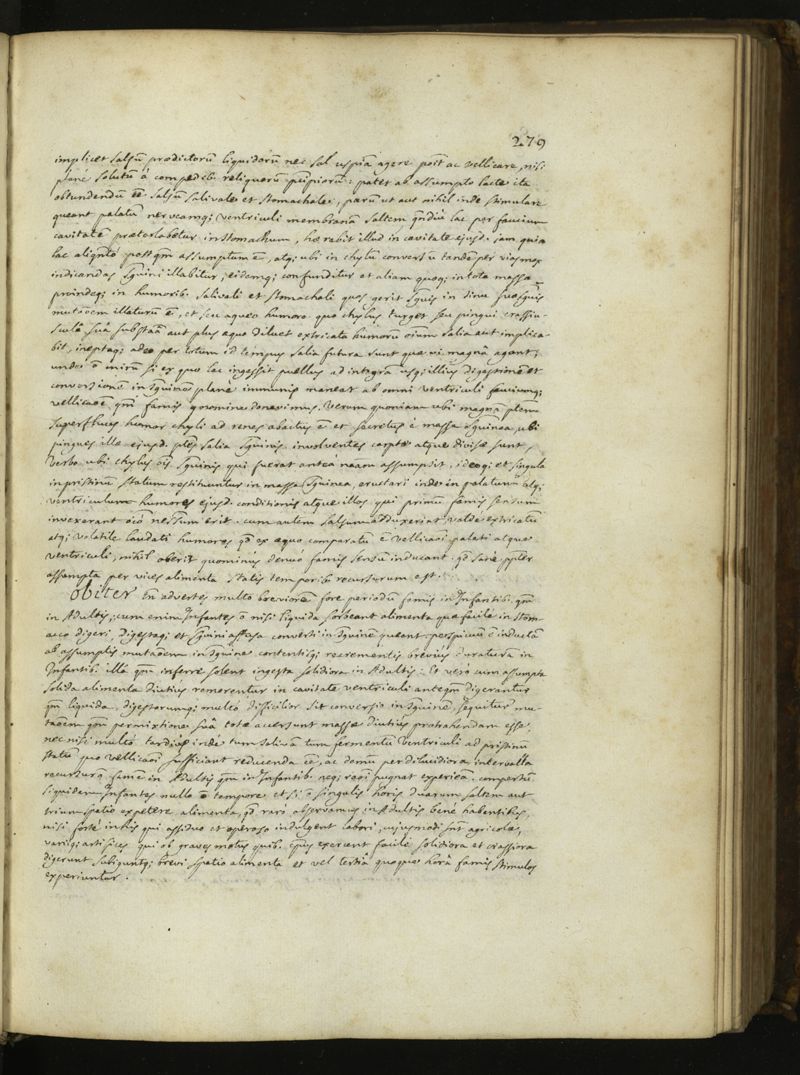 279
implicet salsũ prædictorũ liquidorũ nec sal uspiã agere poĩt ac vellicare, nisi
planè solutũ à compede reliquorũ pcĩpiorũ: patet ab assumpto lacte ita
obtundendũ eẽ salsũ salivale et stomachale, parũ ut aut nihil inde stimulare
queant palatũ nerveamq; ventriculi membranã saltem qñdiu lac per faucium
cavitatẽ præterlabetur in stomachum, hærebit illud in cavitate ejusd. jam quia
lac aliqñtò postqm assumptum ẽ, atq; ubi in chylũ conversũ tandẽ per vias mox
indicandas sgũini illabitur, eidemq; confunditur et aliam quoq; in tota massa
proindeq; in humorib. salivali et stomachali quos gerit sgũis in sinu suo sgũis
mutaõem illaturũ ẽ, et seu aqueo humore quo chylus turget seu pingui crassiu-
sculâ suâ substaã aut plus æquo diluet extricata humorũ oium salia aut implica-
bit, ineptaq; adeo per totum id tempus salia futura sunt quæ vi magnâ agant,
unde õ mirũ si ex quo lac ingessit puellus ad integrã usq; illius digestionẽ et
conversionẽ in sgũinẽ planè immunis maneat ab omni ventriculi fauciumq;
vellicaõe qm famis gnomine donavimus. Verum quoniam ubi magnã ptem
superfluus humor chyli ad renes abactus ẽ et secretus è massa sguinea, ubi
pingues illæ ejusd. ptes salia sgũinis involventes carptæ atque divisæ sunt,
verbo ubi chylus oĩs sgũinis qui fuerat anteà naam assumpsit, ideoq; et singula
in pristinũ statum restituuntur in massa sguinea, eructari inde in palatum atq;
ventriculum humores ejusd. conditionis atque illos qui primũ famis sensum
invexerant oĩõ necssum erit. cum autem salsum adduxerint valdè extricatũ
atq; volatile laudati humores qd ex æquo comparatũ ẽ vellicaõi palati atque
ventriculi, nihil oberit quominus denuò famis sensũ inducant. qd sanè ppter
assumpta per vices alimenta statis temporib. recursurum est.
Obiter tñ advertes multò breviorẽ fore periodũ famis in Infantib. qm
in Adultis; cum enim Infantes õ nisi liquida sorbeant alimenta quæ facilè in stom-
acco digeri, digestaq; et sgũini affusa converti in sgũinẽ queant perspicuũ ẽ inductã
ab assumptis mutaõem in sgũine contentisq; recrementis breviùs duraturã in
Infantib. illâ qm inferre solent ingesta solidiora in Adultis: Et verò cum assumpta
solida alimenta diutiùs remorentur in cavitate ventriculi anteqm digerantur
qm liquida, digestorumq; multò difficilior sit conversio in sgũinẽ, sequitur mu-
taõem qm permixtione suâ totæ accersunt massæ diutius protrahendam esse,
nec nisi multò tardiùs inde tum salivã tum fermentũ ventriculi ad pristinũ
statũ quo vellicaõi sufficiant reducenda eẽ, ac demũ per diluidiora intervalla
recursurã famẽ in Adultis qm in Infantib. neq; raõi pugnat experiẽa. compertũ
siquidem Infantes nullo õ tempore et si õ singulis horis duarum saltem aut
trium spatio expetere alimenta, qd rarò observamus in Adultis benè habentibus,
nisi fortè in his qui assiduo et operoso indulgent labori, cujusmodi snt agricolæ,
variiq; artifices qui ob graves motus quib. cpus exercent facilè solidiora et crassiora
digerunt subiguntq; brevi spatio alimenta et vel tertiâ quoque horâ famis stimulos
experiuntur.